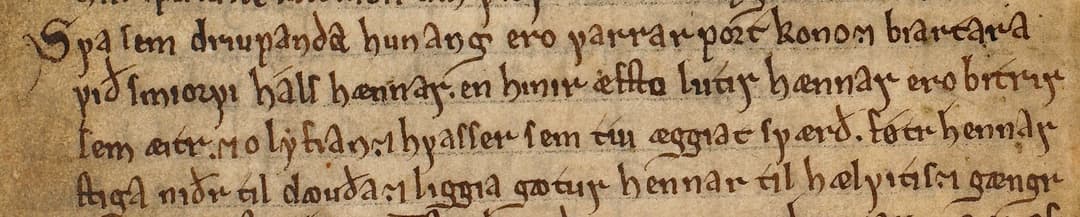 Sꝩa sem driupanda hunang ero ꝩarrar portkono ⁊ biartara
ꝩið smiorꝩi hals hænnar. en hinir æfsto lutir hænnar ero bitrir
sem æitr. ⁊ olyfian. ⁊ hꝩasser sem tui æggiat sꝩærð. føtr hennar
stiga niðr til dæuða. ⁊ liggia gotur hennar til hælꝩitis. ⁊ gængr